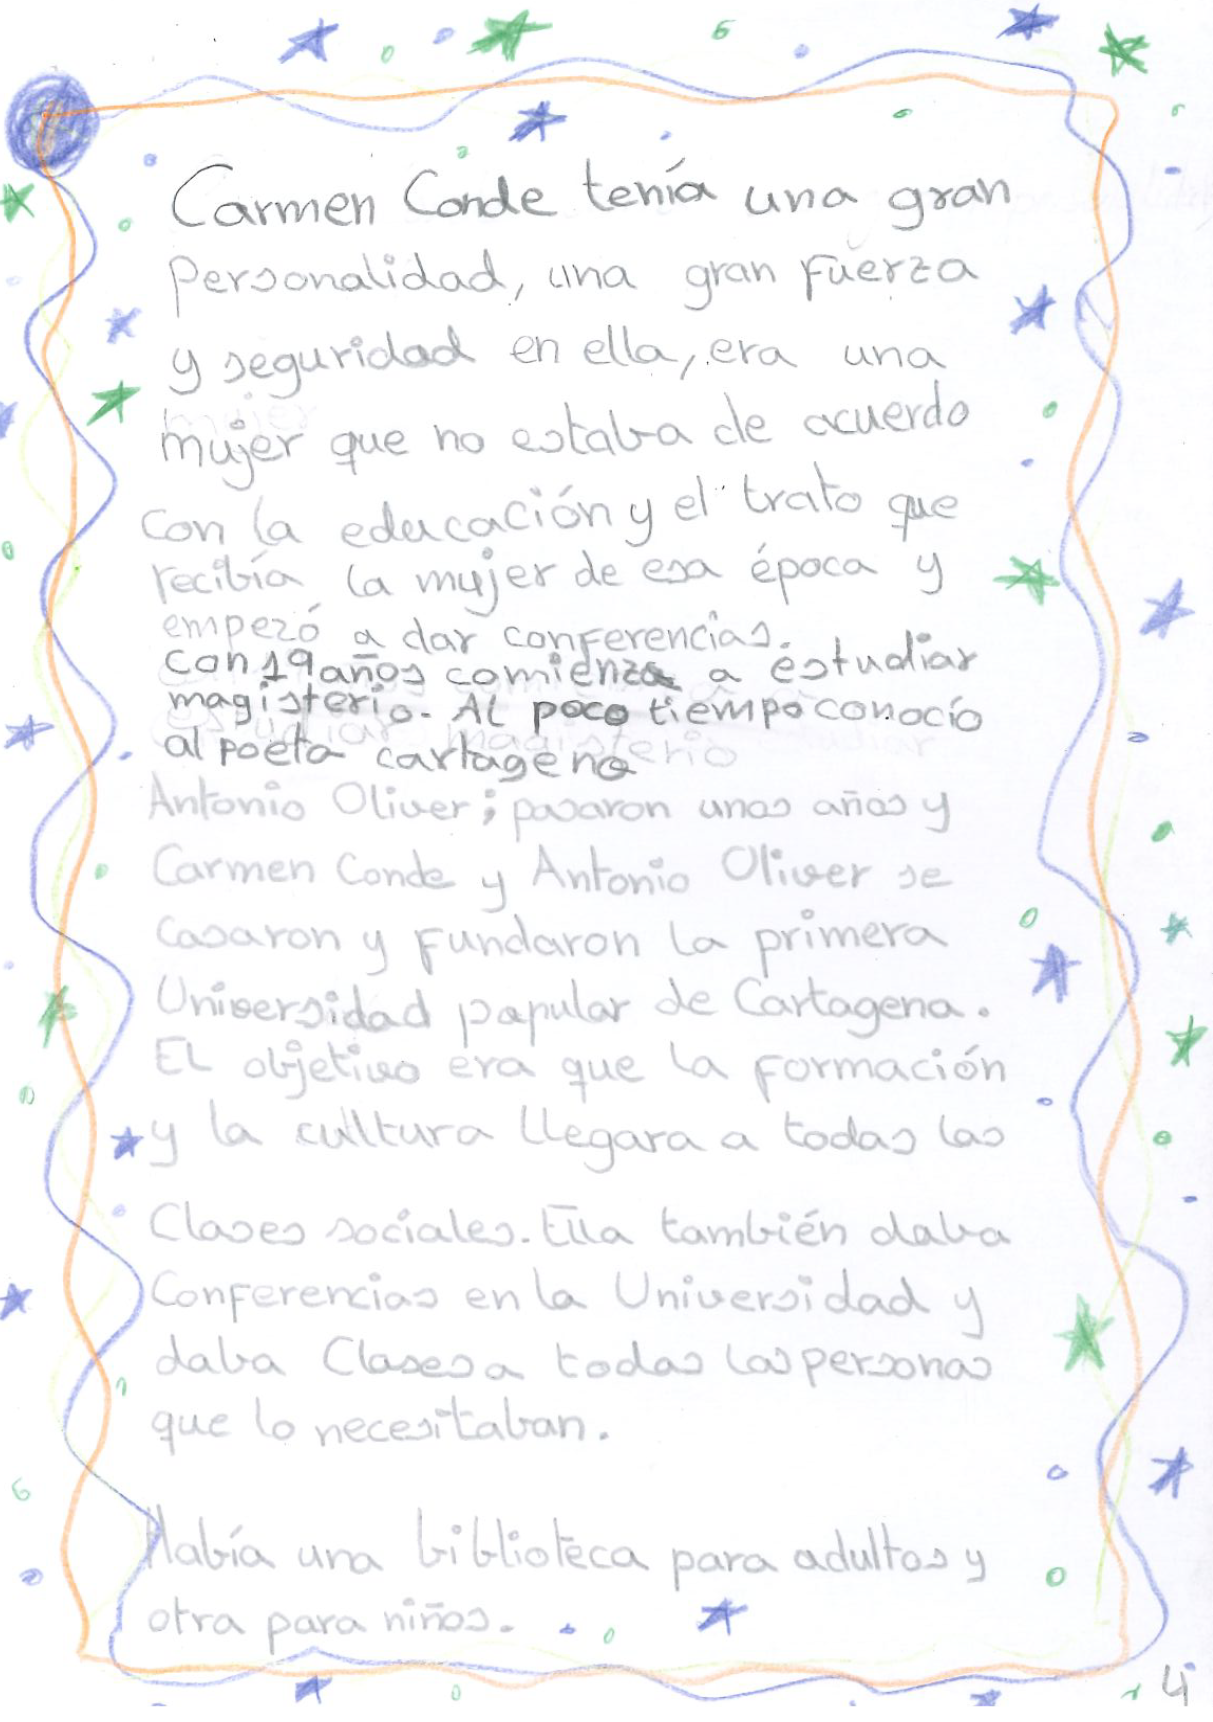 Carmen Conde tenía una gran
personalidad, una gran fuerza
y seguridad en ella, era una
mujer que no estaba de acuerdo
con la educación y el trato que
recibía la mujer de esa época y
empezó a dar conferencias.
con 19 años comienza a estudiar
magisterio. Al poco tiempo conocío
al poeta cartageno
Antonio Oliver; pasaron unos años y
Carmen Conde y Antonio Oliver se
casaron y fundaron la primera
Universidad papular de Cartagena.
El objetivo era que la formación
y la cultura llegara a todas las
Clases sociales. Ella también daba
Conferencias en la Universidad y
daba Clases a todas las personas
que lo necesitaban.
Había una biblioteca para adultos y
otra para niños.
4